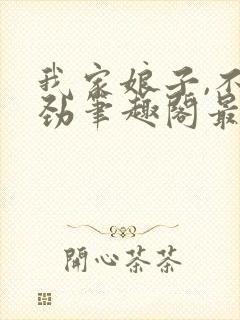 我家娘子,不
劲笔趣阁最
開心茶茶